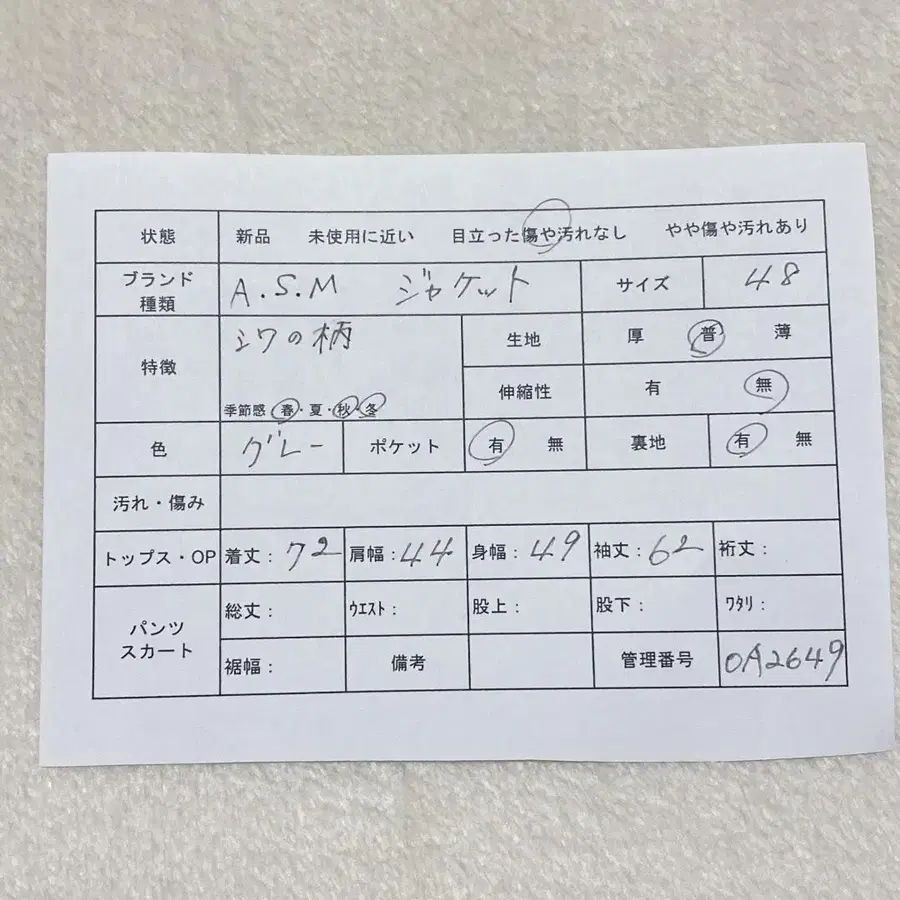 状態 新品 未使用に近い 目立った傷や汚れなし やや傷や汚れあり
ブランド 種類 A.S.M ジャケット サイズ 48
特徴 シワの柄 生地 厚 普 薄
季節感 春・夏・秋・冬 伸縮性 有 無
色 グレー ポケット 有 無 裏地 有 無
汚れ・傷み
トップス・OP 着丈: 72 肩幅: 44 身幅: 49 袖丈: 62 裄丈:
パンツ スカート 総丈: ウエスト: 股上: 股下: ワタリ:
裾幅: 備考 管理番号 OA2649